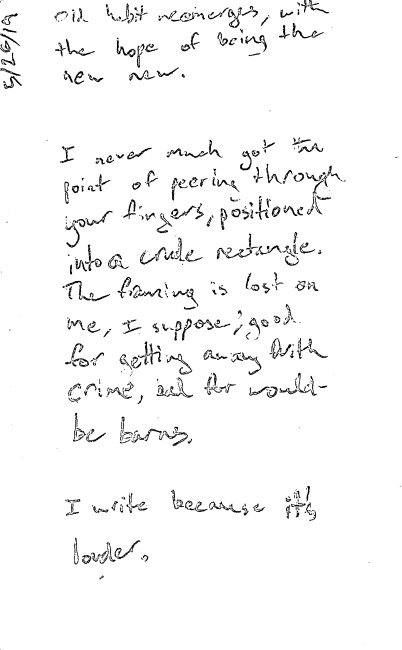 5/26/19
Old habit reemerges, with
the hope of being the
new new.
I never much got the
point of peering through
your fingers, positioned
into a crude rectangle.
The framing is lost on
me, I suppose; good
for getting away with
crime, for would-
be
I write because it's
louder.